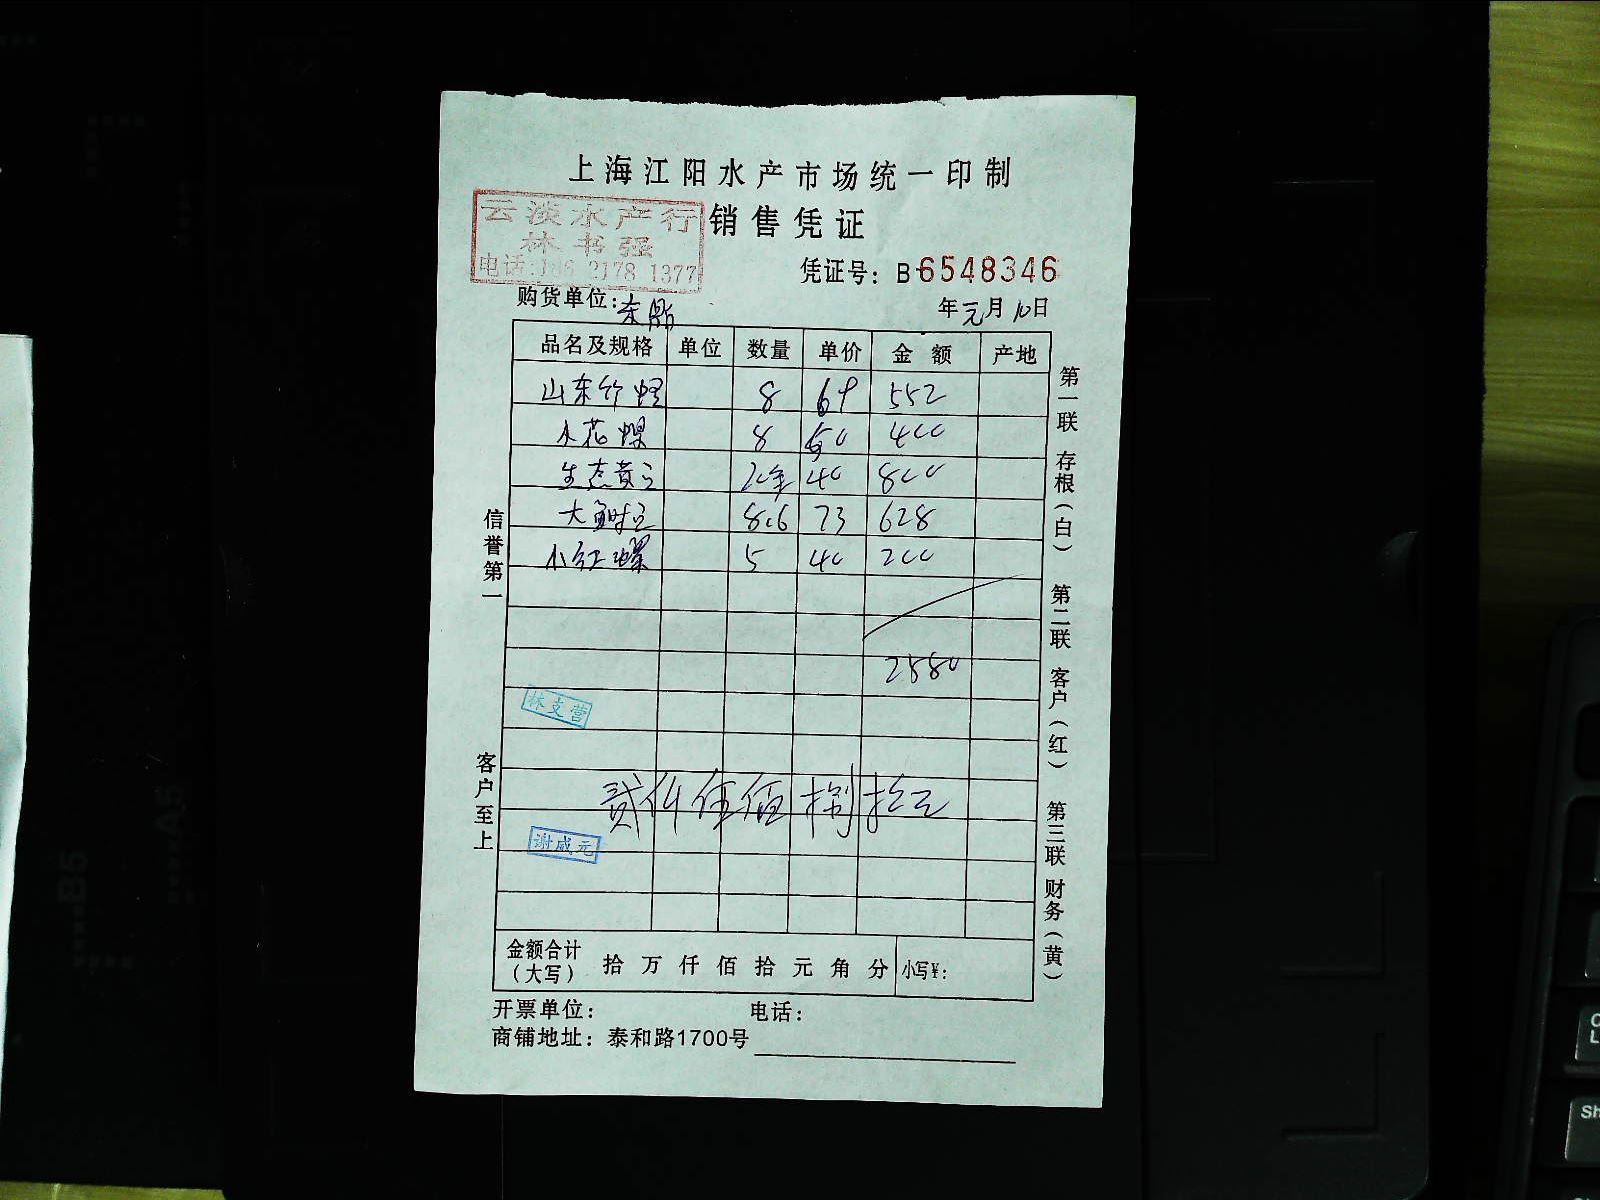 上海江阳水产市场统一印制
销售凭证
云淡水产行
林书强
电话:186 2178 1377
凭证号：B 6548346
购货单位：东船
年元月10日
品名及规格 单位 数量 单价 金额 产地
山东竹蛏 8 69 552
水花螺 8 50 400
生态黄 20 40 800
大 8.6 73 628
小红螺 5 40 200
2580
林支营
贰仟伍佰捌拾元
谢咸元
金额合计（大写） 拾 万 仟 佰 拾 元 角 分 小写¥：
开票单位： 电话：
商铺地址：泰和路1700号
信誉第一
客户至上
第一联 存根（白） 第二联 客户（红） 第三联 财务（黄）
B5
A5